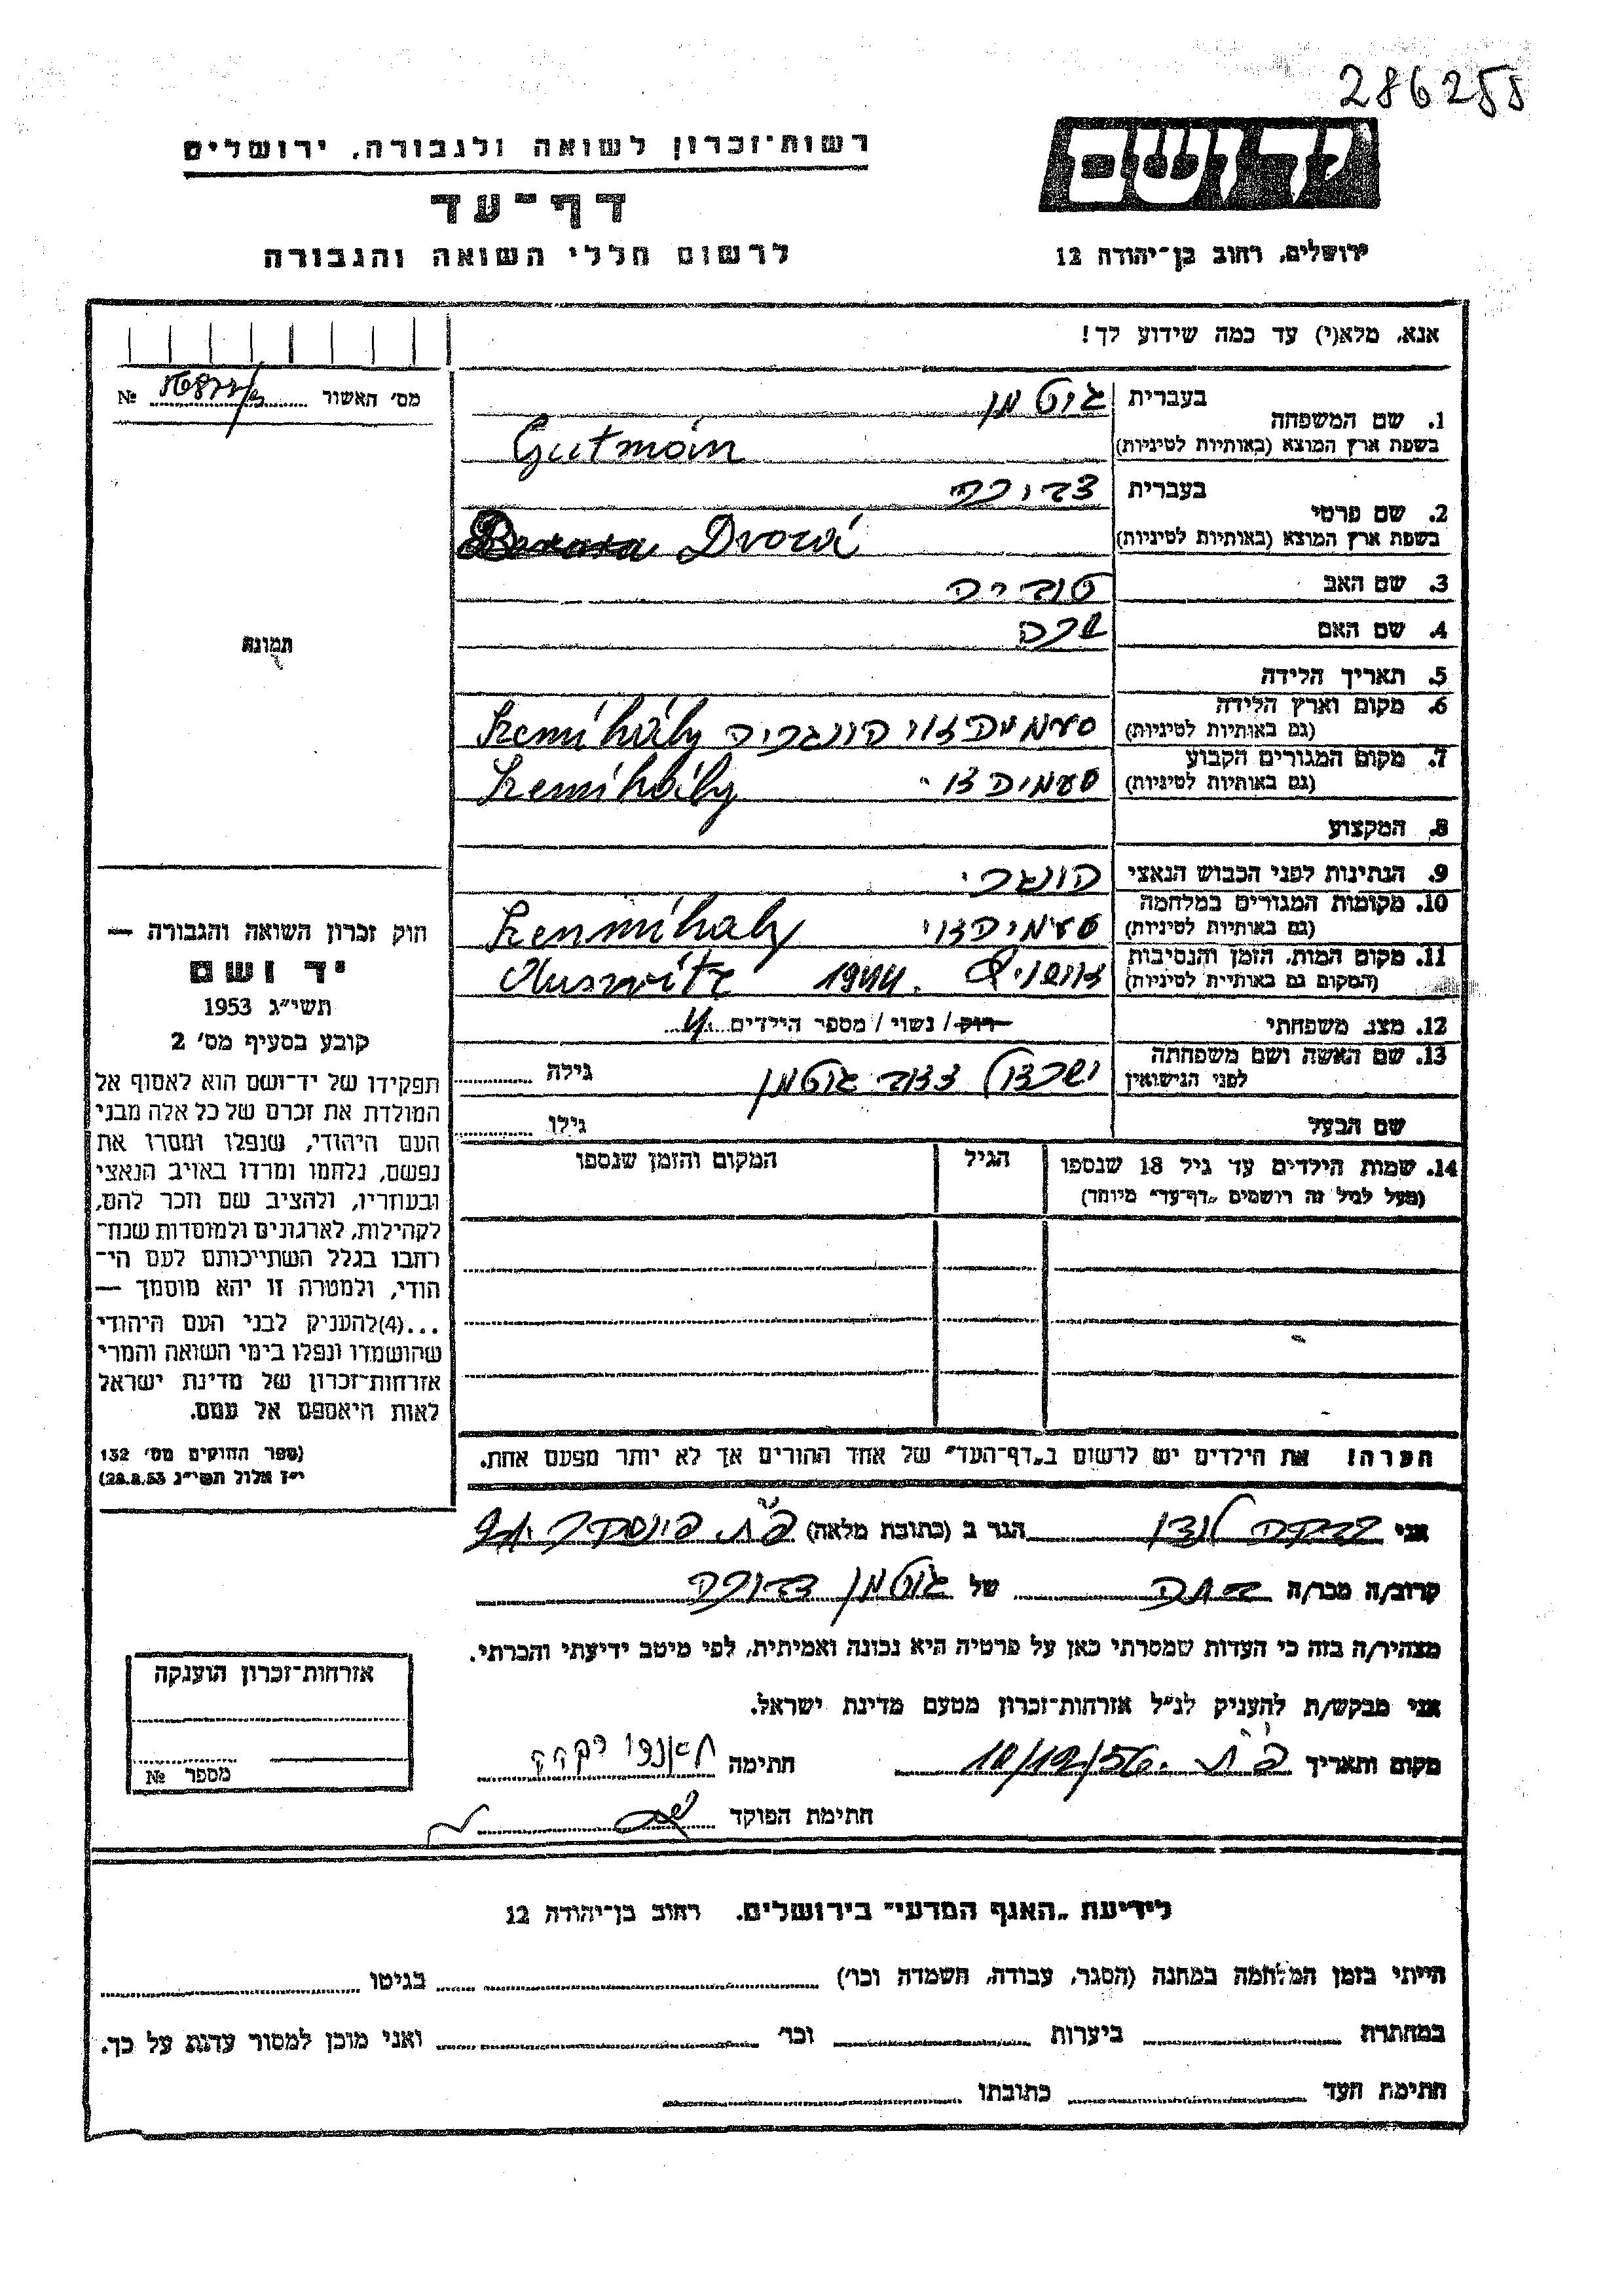 286255
רשות־זכרון לשואה ולגבורה, ירושלים
דף־עד
לרשום חללי השואה והגבורה
יד ושם
ירושלים, רחוב בן־יהודה 12
אנא, מלא(י) עד כמה שידוע לך!
מס׳ האשור № 
1. שם המשפחה
בעברית גוטמן
בשפת ארץ המוצא (באותיות לטיניות) Gutmán
2. שם פרטי
בעברית
בשפת ארץ המוצא (באותיות לטיניות) Dvorá
3. שם האב טוביה
4. שם האם
5. תאריך הלידה
6. מקום וארץ הלידה
(גם באותיות לטיניות)
7. מקום המגורים הקבוע
(גם באותיות לטיניות)
8. המקצוע
9. הנתינות לפני הכבוש הנאצי הונגרי
10. מקומות המגורים במלחמה
(גם באותיות לטיניות)
11. מקום המות, הזמן והנסיבות
(המקום גם באותיות לטיניות) 1944.
12. מצב משפחתי רווק / נשוי / מספר הילדים
13. שם האשה ושם משפחתה
לפני הנישואין גוטמן גילה
שם הבעל גילו
14. שמות הילדים עד גיל 18 שנספו
(מעל לגיל זה רושמים „דף־עד״ מיוחד)
הגיל
המקום והזמן שנספו
הערה! את הילדים יש לרשום ב„דף־העד״ של אחד ההורים אך לא יותר מפעם אחת.
תמונה
חוק זכרון השואה והגבורה —
יד ושם
תשי״ג 1953
קובע בסעיף מס׳ 2
תפקידו של יד־ושם הוא לאסוף אל
המולדת את זכרם של כל אלה מבני
העם היהודי, שנפלו ומסרו את
נפשם, נלחמו ומרדו באויב הנאצי
ובעוזריו, ולהציב שם וזכר להם,
לקהילות, לארגונים ולמוסדות שנח־
רבו בגלל השתייכותם לעם הי־
הודי, ולמטרה זו יהא מוסמך —
...(4)להעניק לבני העם היהודי
שהושמדו ונפלו בימי השואה והמרי
אזרחות־זכרון של מדינת ישראל
לאות היאספם אל עמם.
(ספר החוקים מס׳ 132
י״ז אלול תשי״ג 28.8.53)
אני רבקה לנדו הגר ב (כתובת מלאה)
קרוב/ה מכר/ה של גוטמן
מצהיר/ה בזה כי העדות שמסרתי כאן על פרטיה היא נכונה ואמיתית, לפי מיטב ידיעתי והכרתי.
אני מבקש/ת להעניק לנ״ל אזרחות־זכרון מטעם מדינת ישראל.
מקום ותאריך 10/12/56 חתימה
חתימת הפוקד
אזרחות־זכרון הוענקה
מספר №
לידיעת „האגף המדעי״ בירושלים. רחוב בן־יהודה 12
הייתי בזמן המלחמה במחנה (הסגר, עבודה, השמדה וכו׳) בגיטו
במחתרת ביערות וכו׳ ואני מוכן למסור עדות על כך.
חתימת העד כתובתו